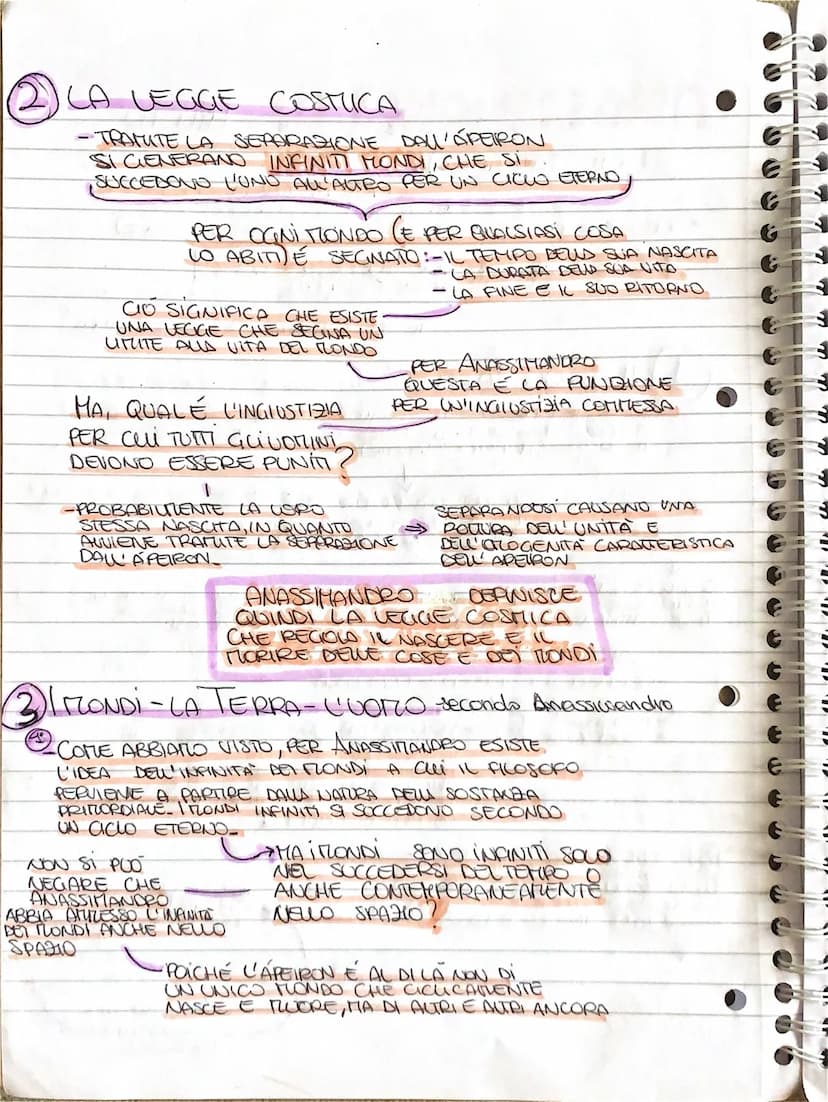 2 LA LEGGE COSMICA
- TRAMITE LA SEPARAZIONE DALL'ÁPEIRON
SI GENERANO INFINITI MONDI, CHE SI
SUCCEDONO L'UNO ALL'ALTRO PER UN CICLO ETERNO
PER OGNI MONDO (E PER QUALSIASI COSA
LO ABITI) É SEGNATO: - IL TEMPO DELLA SUA NASCITA
- LA DURATA DELLA SUA VITA
- LA FINE E IL SUO RITORNO
CIÓ SIGNIFICA CHE ESISTE
UNA LEGGE CHE SEGNA UN
LIMITE ALLA VITA DEL MONDO
PER ANASSIMANDRO
QUESTA É LA PUNIZIONE
PER UN'INGIUSTIZIA COMMESSA
MA, QUAL É L'INGIUSTIZIA
PER CUI TUTTI GLI UOMINI
DEVONO ESSERE PUNITI?
- PROBABILMENTE LA LORO
STESSA NASCITA, IN QUANTO
AVVIENE TRAMITE LA SEPARAZIONE
DALL'ÁPEIRON
⇒ SEPARANDOSI CAUSANO UNA
ROTTURA DELL'UNITÀ E
DELL'OMOGENITÁ CARATTERISTICA
DELL'APEIRON
ANASSIMANDRO DEFINISCE
QUINDI LA LEGGE COSMICA
CHE REGOLA IL NASCERE E IL
MORIRE DELLE COSE E DEI MONDI
3 I MONDI - LA TERRA - L'UOMO secondo Anassimandro
1 - COME ABBIAMO VISTO, PER ANASSIMANDRO ESISTE
L'IDEA DELL'INFINITÀ DEI MONDI A CUI IL FILOSOFO
PERVIENE A PARTIRE DALLA NATURA DELLA SOSTANZA
PRIMORDIALE. I MONDI INFINITI SI SUCCEDONO SECONDO
UN CICLO ETERNO
→ MA I MONDI SONO INFINITI SOLO
NEL SUCCEDERSI DEL TEMPO O
ANCHE CONTEMPORANEAMENTE
NELLO SPAZIO?
NON SI PUÓ
NEGARE CHE
ANASSIMANDRO
ABBIA AMMESSO L'INFINITÀ
DEI MONDI ANCHE NELLO
SPAZIO
POICHÉ L'ÁPEIRON É AL DI LÀ NON DI
UN UNICO MONDO CHE CICLICAMENTE
NASCE E MUORE, MA DI ALTRI E ALTRI ANCORA